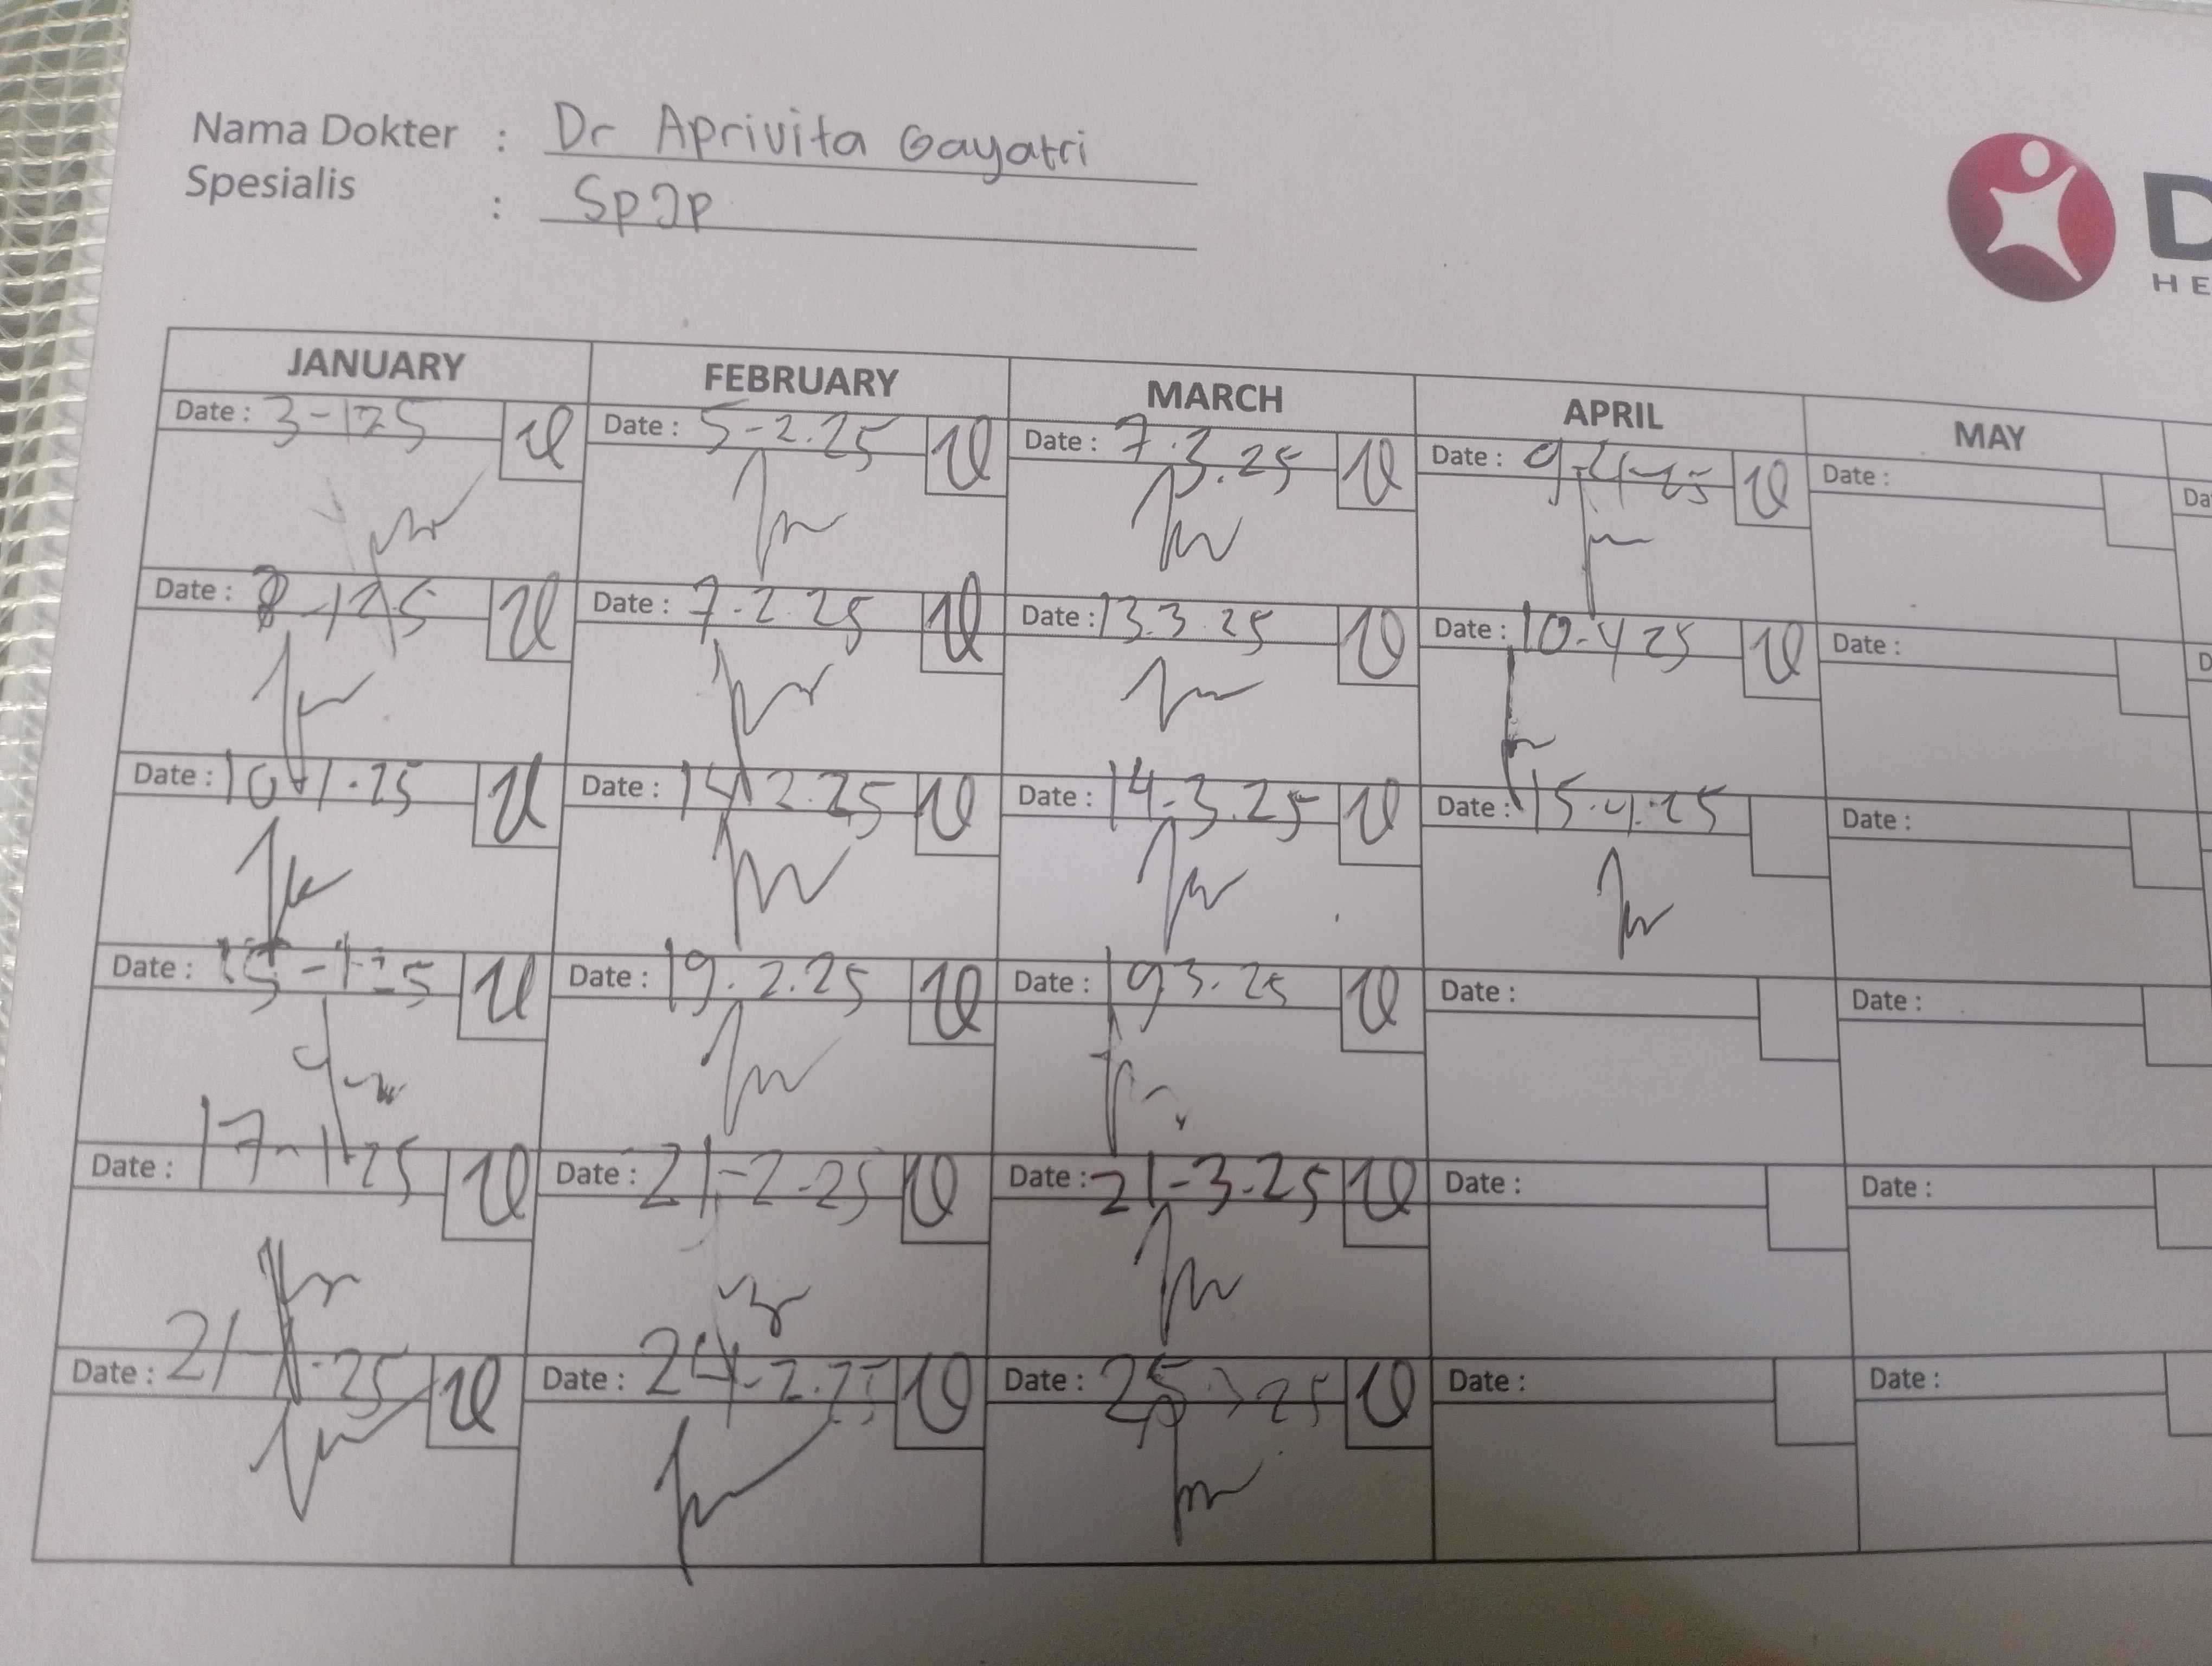 Nama Dokter : Dr Aprivita Gayatri
Spesialis : SpJp
D
HE
JANUARY FEBRUARY MARCH APRIL MAY
Date : 3-125 Date : 5-2.25 Date : 7.3.25 Date : 9-4-25 Date : Da
Date : 8-125 Date : 7-2.25 Date : 13.3.25 Date : 10-4 25 Date : D
Date : 10-1.25 Date : 14 2.25 Date : 14-3.25 Date : 15.4.25 Date :
Date : 15-1-25 Date : 19.2.25 Date : 193.25 Date : Date :
Date : 17-1-25 Date : 21-2-25 Date : 21-3-25 Date : Date :
Date : 21-1-25 Date : 24-2.25 Date : 25 3 25 Date : Date :